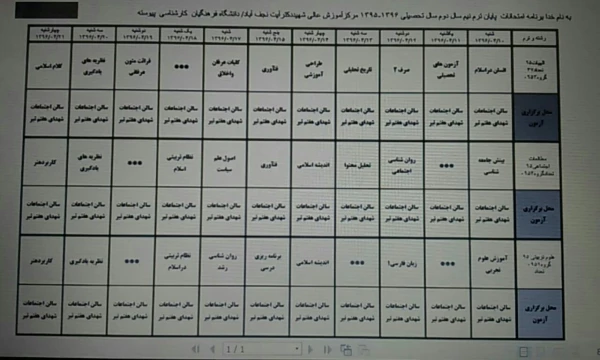 به نام خدا برنامه امتحانات پایان ترم نیم سال دوم سال تحصیلی ۱۳۹۶-۱۳۹۵ مرکز آموزش عالی شهید دکتر آیت نجف آباد/ دانشگاه فرهنگیان کارشناسی پیوسته
رشته و ترم شنبه یکشنبه دوشنبه سه شنبه چهارشنبه پنج شنبه شنبه یک شنبه دوشنبه سه شنبه چهارشنبه
انسان در اسلام آزمون های تحصیلی صرف ۲ تاریخ تحلیلی طراحی آموزشی فناوری کلیات عرفان واخلاق *** قرائت متون عرفانی نظریه های یادگیری کلام اسلامی
محل برگزاری آزمون سالن اجتماعات شهدای هفتم تیر سالن اجتماعات شهدای هفتم تیر سالن اجتماعات شهدای هفتم تیر سالن اجتماعات شهدای هفتم تیر سالن اجتماعات شهدای هفتم تیر سالن اجتماعات شهدای هفتم تیر سالن اجتماعات شهدای هفتم تیر سالن اجتماعات شهدای هفتم تیر سالن اجتماعات شهدای هفتم تیر سالن اجتماعات شهدای هفتم تیر سالن اجتماعات شهدای هفتم تیر
مطالعات اجتماعی بینش جامعه شناسی *** روان شناسی اجتماعی تحلیل محتوا اندیشه اسلامی فناوری اصول علم سیاست نظام تربیتی اسلام *** نظریه های یادگیری کاربرد هنر
محل برگزاری آزمون سالن اجتماعات شهدای هفتم تیر سالن اجتماعات شهدای هفتم تیر سالن اجتماعات شهدای هفتم تیر سالن اجتماعات شهدای هفتم تیر سالن اجتماعات شهدای هفتم تیر سالن اجتماعات شهدای هفتم تیر سالن اجتماعات شهدای هفتم تیر سالن اجتماعات شهدای هفتم تیر سالن اجتماعات شهدای هفتم تیر سالن اجتماعات شهدای هفتم تیر سالن اجتماعات شهدای هفتم تیر
علوم تربیتی ۹۵ آموزش علوم تجربی *** زبان فارسی۱ *** اندیشه اسلامی برنامه ریزی درسی روان شناسی رشد نظام تربیتی در اسلام *** نظریه یادگیری کاربردهنر
محل برگزاری آزمون سالن اجتماعات شهدای هفتم تیر سالن اجتماعات شهدای هفتم تیر سالن اجتماعات شهدای هفتم تیر سالن اجتماعات شهدای هفتم تیر سالن اجتماعات شهدای هفتم تیر سالن اجتماعات شهدای هفتم تیر سالن اجتماعات شهدای هفتم تیر سالن اجتماعات شهدای هفتم تیر سالن اجتماعات شهدای هفتم تیر سالن اجتماعات شهدای هفتم تیر سالن اجتماعات شهدای هفتم تیر
1 / 1